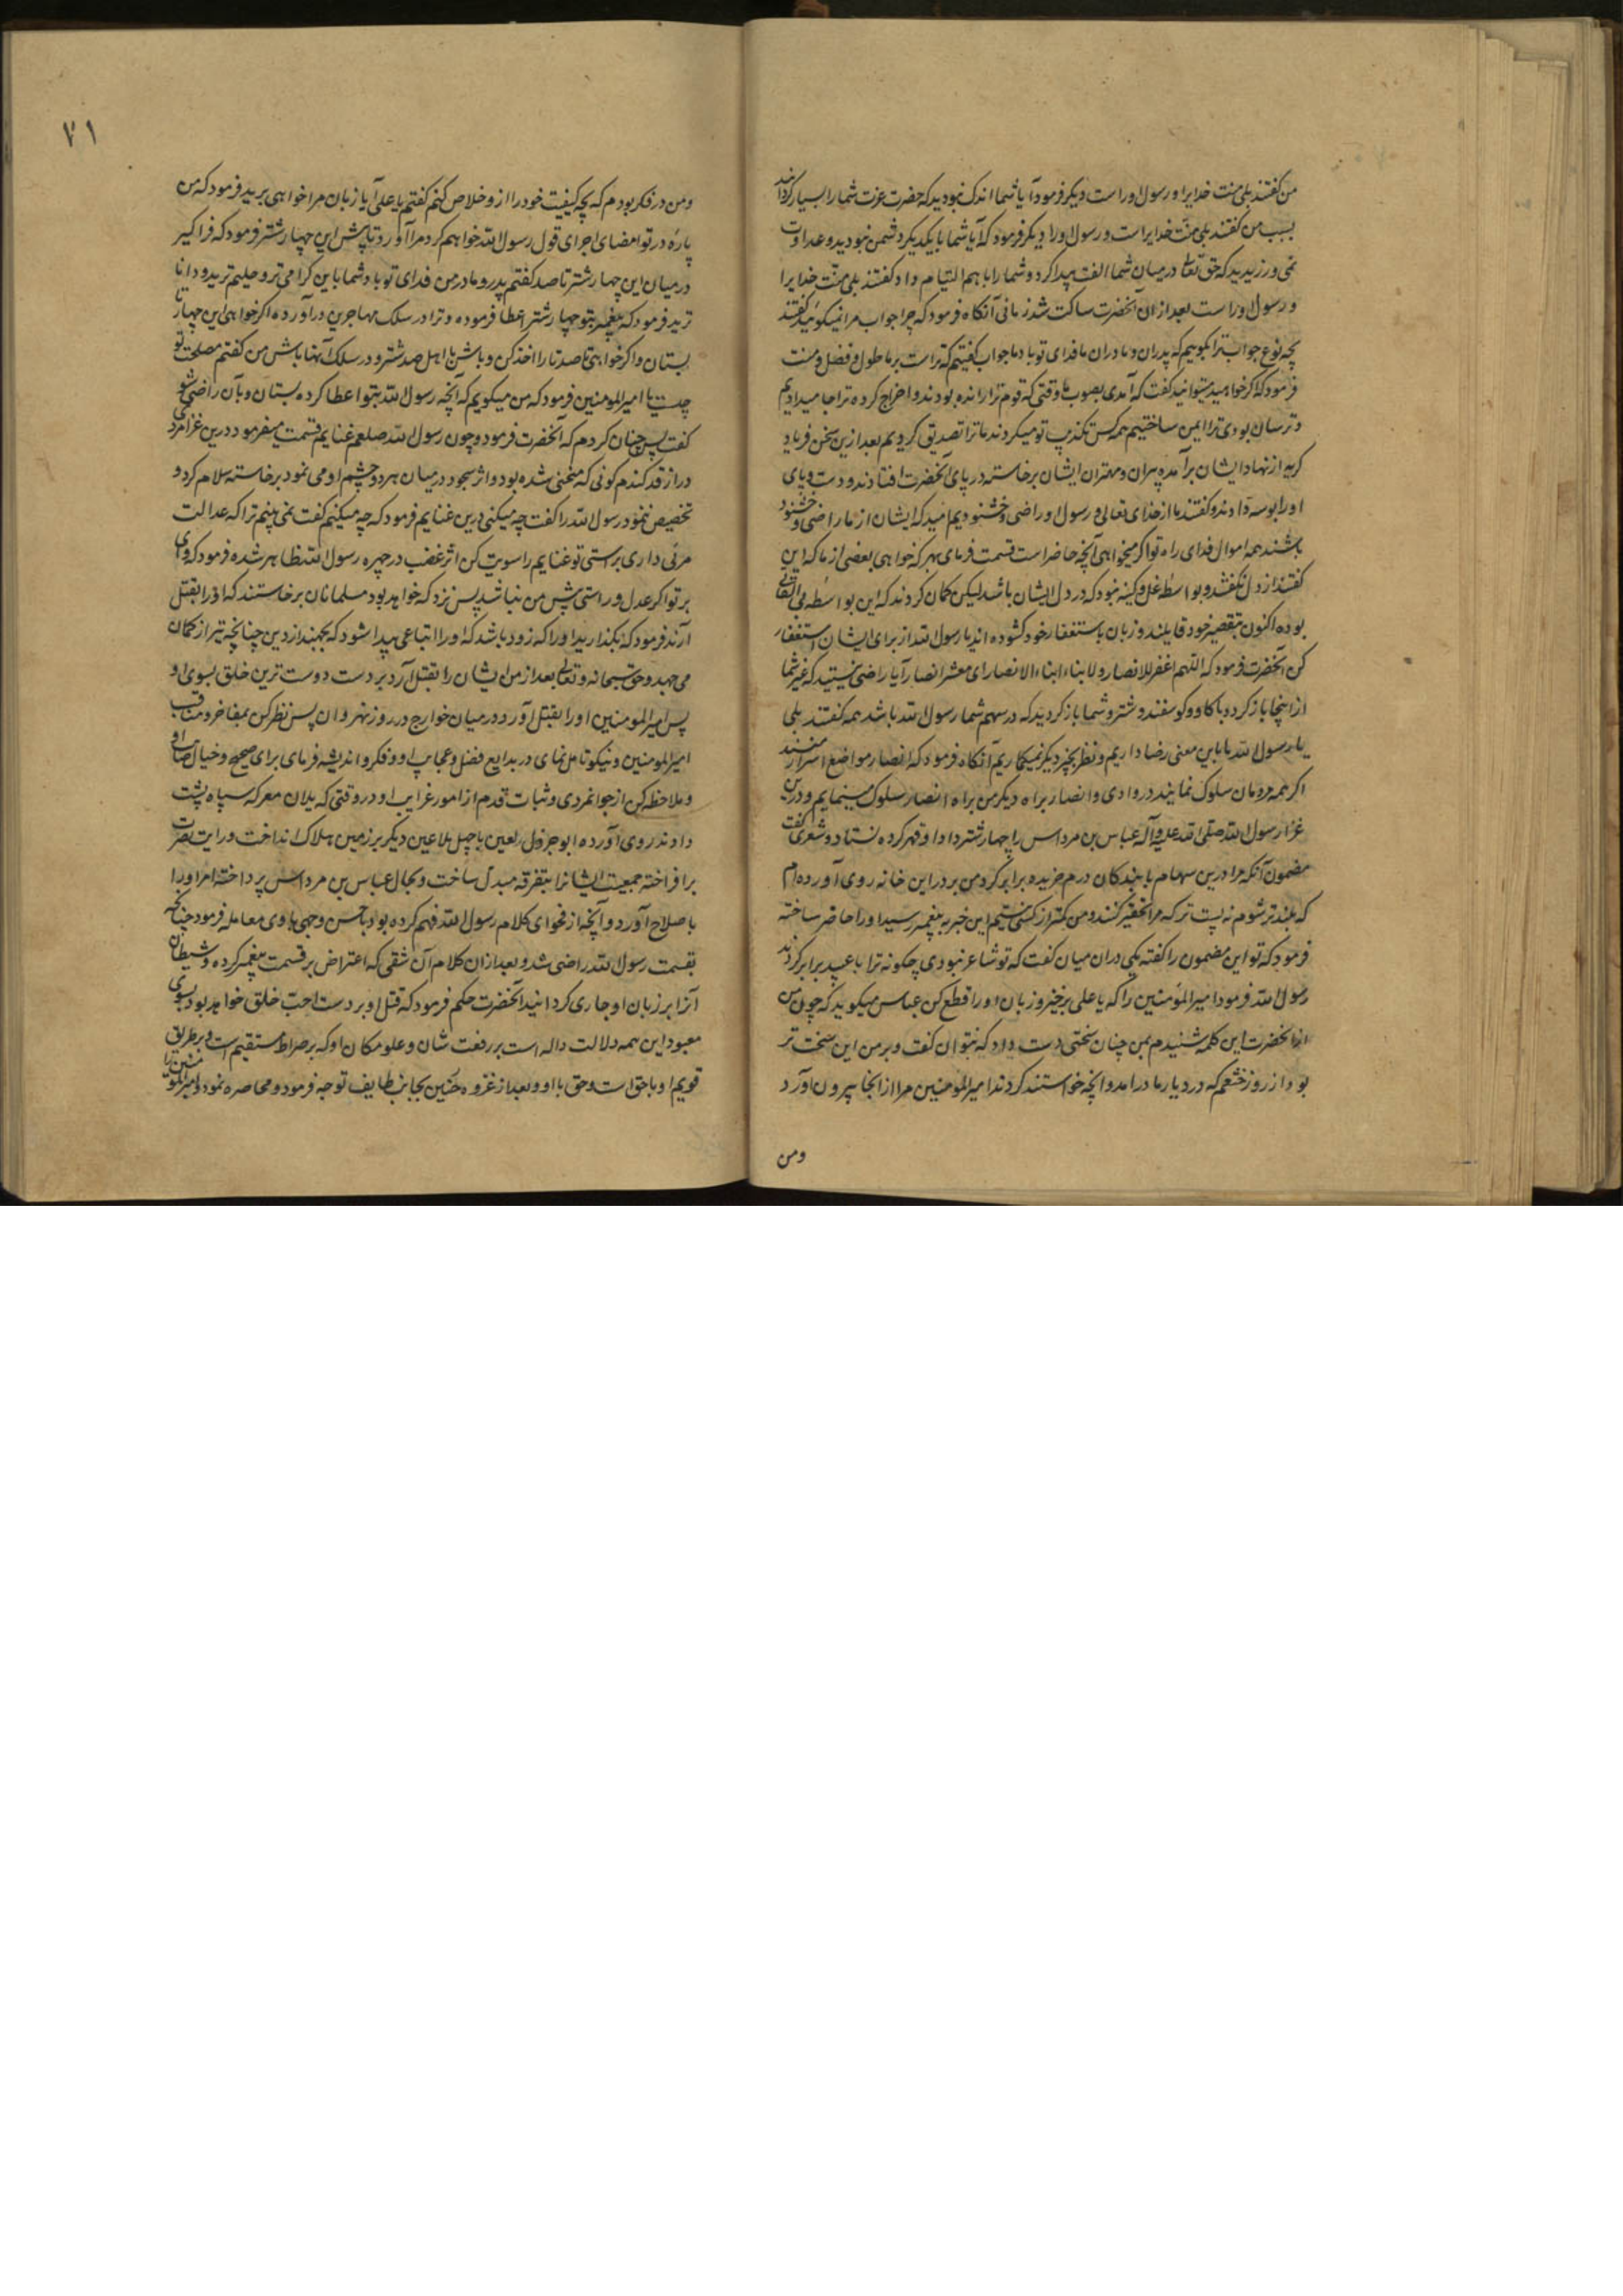 من گفتند بلی منت خدایرا و رسول او راست دیگر فرمود آیا شما اندک نبودید که حضرت عزت شما را بسیار گردانید
بسبب من گفتند بلی منّت خدایراست و رسول او را دیگر فرمود که آیا شما با یکدیگر دشمن نبودید و عداوت
نمی ورزیدید که حق تعالی در میان شما الفت پیدا کرد و شما را با هم التیام داد گفتند بلی منّت خدایرا
و رسول او راست بعد از ان آنحضرت ساکت شد زمانی آنگاه فرمود که چرا جواب مرا نمیگوئید گفتند
بچه نوع جواب ترا بگوییم که پدران و مادران ما فدای تو باد ما جواب گفتیم که تراست بر ما طول و فضل و منت
فرمود که اگر خواهید میتوانید گفت که آمدی بصوب ما وقتی که قوم ترا رانده بودند و اخراج کرده ترا جا میدادیم
و ترسان بودی ترا ایمن ساختیم همه کس تکذیب تو میکردند ما ترا تصدیق کردیم بعد ازین سخن فریاد
گریه از نهاد ایشان برآمد پیران و مهتران ایشان برخاسته در پای آنحضرت افتادند و دست و پای
او را بوسه دادند و گفتند ما از خدای تعالی و رسول او راضی و خشنودیم امید که ایشان از ما راضی و خشنود
باشند همه اموال فدای راه تو اگر میخواهی آنچه حاضر است قسمت فرمای بهر که خواهی بعضی از ما که این
گفتند از دل نگفتند و بواسطه غل و کینه نبود که در دل ایشان باشد لیکن گمان کردند که این بواسطه بی التفاتی
بوده اکنون بتقصیر خود قایلند و زبان باستغفار خود گشوده اند یا رسول الله از برای ایشان استغفار
کن آنحضرت فرمود که اللهم اغفر للانصار و لابناء ابناء الانصار ای معشر انصار آیا راضی نیستید که غیر شما
از اینجا باز گردد با گاو و گوسفند و شتر و شما باز گردید که در سهم شما رسول الله باشد همه گفتند بلی
یا رسول الله ما باین معنی رضا داریم و نظر بچیز دیگر نمیگماریم آنگاه فرمود که انصار مواضع اسرار منند
اگر همه مردمان سلوک نمایند در وادی و انصار براه دیگر من براه انصار سلوک مینمایم و درین
غزا رسول الله صلی الله علیه و آله عباس بن مرداس را چهار شتر داد او قهر کرده نستاد و شعری گفت
مضمون آنکه مرا درین سهام با بندگان درم خریده برابر کرد من بر در این خانه روی آورده ام
که بلندتر شوم نه پست تر که مرا تحقیر کنند و من کمتر از کسی نیستم این خبر به پیغمبر رسید او را حاضر ساخته
فرمود که تو این مضمون را گفته یکی دران میان گفت که تو شاعر نبودی چگونه ترا با عبید برابر کردند
رسول الله فرمود امیرالمؤمنین را که یا علی برخیز و زبان او را قطع کن عباس میگوید که چون من
از آنحضرت این کلمه شنیدم بمن چنان سختی دست داد که نتوان گفت و بر من این سخت تر
بود از روز خثعم که در دیار ما درامد و آنچه خواستند کردند امیرالمؤمنین مرا از انجا بیرون آورد
ومن
۷۱
ومن در فکر بودم که بچه کیفیت خود را از و خلاص کنم گفتم یا علی آیا زبان مرا خواهی برید فرمود که من
در تو امضای اجرای قول رسول الله خواهم کرد مرا آورد تا پیش این چهار شتر فرمود که فرا گیر
در میان این چهار شتر تا صد گفتم پدر و مادر من فدای تو باد شما باین گرامی تر و حلیم ترید و دانا
ترید فرمود که پیغمبر بتو چهار شتر اعطا فرموده و ترا در سلک مهاجرین درآورده اگر خواهی این چهار
بستان و اگر خواهی تا صد تا را اخذ کن و باش با اهل صد شتر و در سلک آنها باش من گفتم مصلحت تو
چیست یا امیرالمومنین فرمود که من میگویم که آنچه رسول الله بتو اعطا کرده بستان و بآن راضی شو
گفت پس چنان کردم که آنحضرت فرمود و چون رسول الله صلعم غنایم قسمت میفرمود درین غزا مردی
دراز قد گندم گونی که منحنی شده بود و اثر سجود در میان هر دو چشم او می نمود برخاسته سلام کرد و
تخصیص ننمود رسول الله را گفت چه میکنی درین غنایم فرمود که چه میکنم گفت نمی بینم ترا که عدالت
مرئی داری براستی تو غنایم را سویت کن اثر غضب در چهره رسول الله ظاهر شده فرمود که وای
بر تو اگر عدل و راستی پیش من نباشد پس نزد که خواهد بود مسلمانان برخاستند که او را بقتل
آرند فرمود که بگذارید او را که زود باشد که او را اتباعی پیدا شود که بجهند از دین چنانچه تیر از کمان
می جهد و حق سبحانه و تعالی بعد از من ایشان را بقتل آرد بر دست دوست ترین خلق بسوی او
پس امیرالمومنین او را بقتل آورد در میان خوارج در روز نهروان پس نظر کن بمفاخر و مناقب
امیرالمومنین و نیکو تامل نمای در بدایع فضل و عجایب او و فکر و اندیشه فرمای برای صحیح و خیال صایب او
و ملاحظه کن از جوانمردی و ثبات قدم از امور غرایب او در وقتی که یلان معرکه سپاه پشت
دادند روی آورده ابو جرول لعین با چهل ملاعین دیگر بر زمین هلاک انداخت و رایت نصرت
برافراخته جمعیت ایشانرا بتفرقه مبدل ساخت و بحال عباس بن مرداس پرداخته امر او را
باصلاح آورد و آنچه از فحوای کلام رسول الله فهم کرده بود باحسن وجهی باوی معامله فرمود چنانچه
بقسمت رسول الله راضی شد و بعد از ان کلام آن شقی که اعتراض بر قسمت پیغمبر کرده و شیطان
آنرا بر زبان او جاری گردانید آنحضرت حکم فرمود که قتل او بر دست احبّ خلق خواهد بود بسوی
معبود این همه دلالت داله است بر رفعت شان و علو مکان او که بر صراط مستقیم است و بر طریق
قویم او با حق است و حق با او و بعد از غزوه حنین بجانب طایف توجه فرمود و محاصره نمود و امیرالمؤمنین را